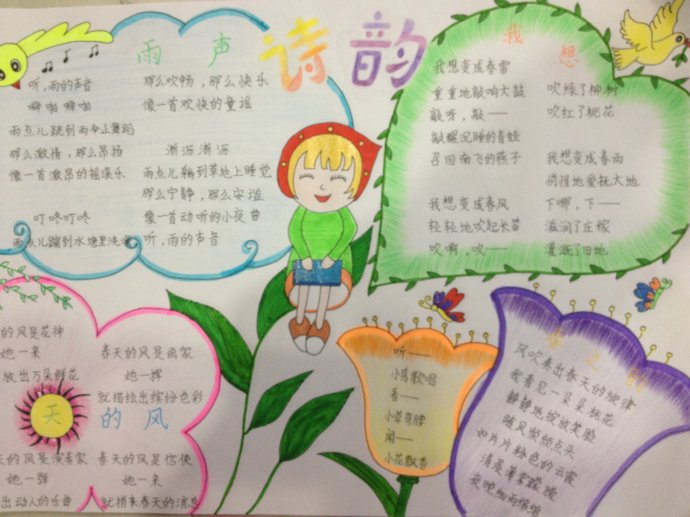 诗韵
雨声
听,雨的声音
噼啪 噼啪
雨点儿跳到雨伞上舞蹈
那么激情,那么昂扬
像一首激昂的摇滚乐
叮咚叮咚
雨点儿蹦到水塘里洗澡
那么欢畅,那么快乐
像一首欢快的童谣
淅沥淅沥
雨点儿躺到草地上睡觉
那么宁静,那么安谧
像一首动听的小夜曲
听,雨的声音
我想
我想变成春雷
重重地敲响大鼓
敲呀,敲——
敲醒沉睡的青蛙
召回南飞的燕子
我想变成春风
轻轻地吹起长笛
吹啊,吹——
吹绿了柳树
吹红了桃花
我想变成春雨
悄悄地爱抚大地
下哪,下——
滋润了庄稼
灌溉了田地
天的风
的风是花神
她一来
放出万朵鲜花
春天的风是画家
她一挥
就描绘出缤纷色彩
的风是演奏家
她一弹
出动人的乐曲
春天的风是信使
她一来
就捎来春天的消息
听——
小鸟歌唱
看——
小草弯腰
闻——
小花飘香
春之
风吹来出春天的旋律
我看见一朵朵桃花
静静地绽放笑脸
随风频频点头
如片片粉色的云霞
清晨薄雾朦胧
夜晚细雨